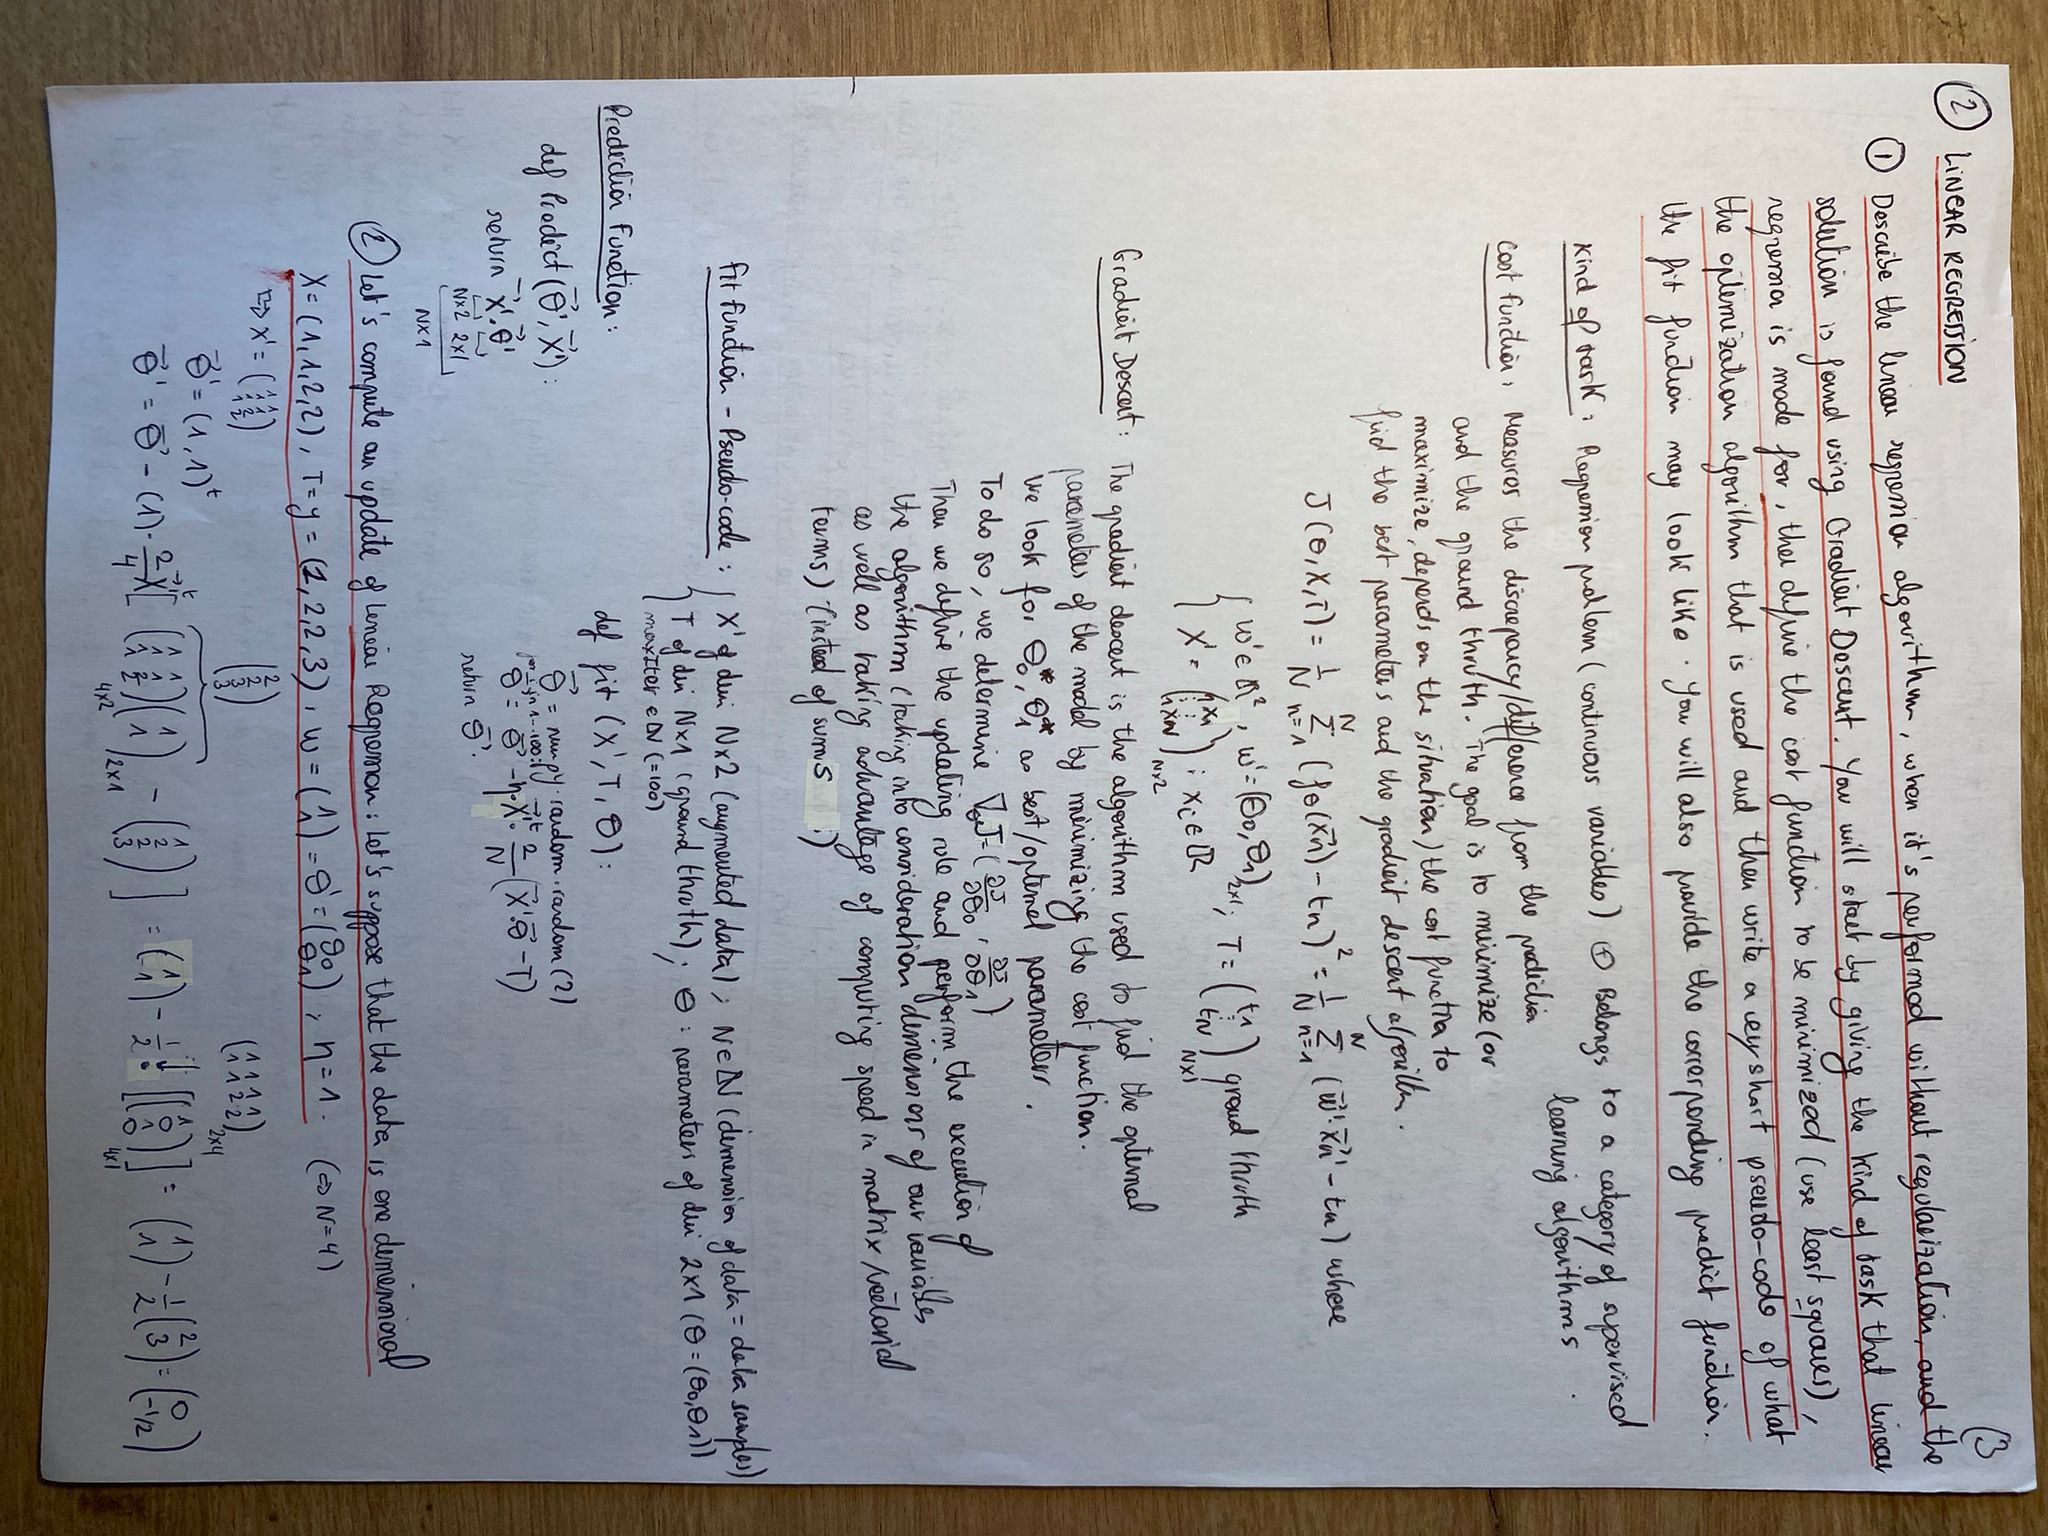 ② LINEAR REGRESSION
(3
① Describe the linear regression algorithm, when it's performed without regularization, and the
solution is found using Gradient Descent. You will start by giving the kind of task that linear
regression is made for, then define the cost function to be minimized (use least squares),
the optimization algorithm that is used and then write a very short pseudo-code of what
the fit function may look like. You will also provide the corresponding predict function.
Kind of task: Regression problem (continuous variables) ⊕ Belongs to a category of supervised
learning algorithms.
Cost function: Measures the discrepancy/difference from the prediction
and the ground thruth. The goal is to minimize (or
maximize, depends on the situation) the cost function to
find the best parameters and the gradient descent algorithm.
J(θ,X,T) = 1/N Σ_{n=1}^{N} (fθ(x⃗n) - tn)² = 1/N Σ_{n=1}^{N} (w⃗'·x⃗n' - tn) where
{ w' ∈ ℝ², w' = (θ0, θ1)_{2x1}; T = (t1 ⋮ tN)_{Nx1} ground thruth
X' = (1 x1 ⋮ ⋮ 1 xN)_{Nx2} ; xi ∈ ℝ
Gradient Descent: The gradient descent is the algorithm used to find the optimal
parameters of the model by minimizing the cost function.
We look for θ0*, θ1* as best/optimal parameters.
To do so, we determine ∇θJ = (∂J/∂θ0, ∂J/∂θ1)
Then we define the updating rule and perform the execution of
the algorithm (taking into consideration dimensions of our variables
as well as taking advantage of computing speed in matrix/vectorial
terms) (instead of sums.)
Fit function - Pseudo-code: { X' of dim Nx2 (augmented data); N∈ℕ (dimension of data = data samples)
T of dim Nx1 (ground thruth); θ: parameters of dim 2x1 (θ=(θ0,θ1))
maxIter ∈ ℕ (=100)
Prediction Function:
def Predict(θ⃗', X⃗'):
return X⃗'·θ⃗'
Nx2 2x1
Nx1
def fit (X', T, θ):
θ⃗ = numpy.random.random(2)
for i in 1...100:
θ⃗' = θ⃗ - η·X⃗'ᵗ· 2/N (X⃗'·θ⃗ - T)
return θ⃗'.
② Let's compute an update of Linear Regression: Let's suppose that the data is one dimensional
X = (1,1,2,2), T = y = (1,2,2,3), w = (1 1) = θ' = (θ0 θ1); η = 1. (⇒ N=4)
⇨ X' = (1 1 1 1 1 2 1 2) (2 2 3 3) (1 1 1 1 1 1 2 2)_{2x4}
θ⃗' = (1,1)ᵗ
θ⃗' = θ⃗ - (1)· 2/4 X⃗'ᵗ [ (1 1 1 1 1 2 1 2)_{4x2} (1 1)_{2x1} - (1 2 2 3) ] = (1 1) - 1/2 · [(1 0 1 0)_{4x1}] = (1 1) - 1/2 (2 3) = (0 -1/2)